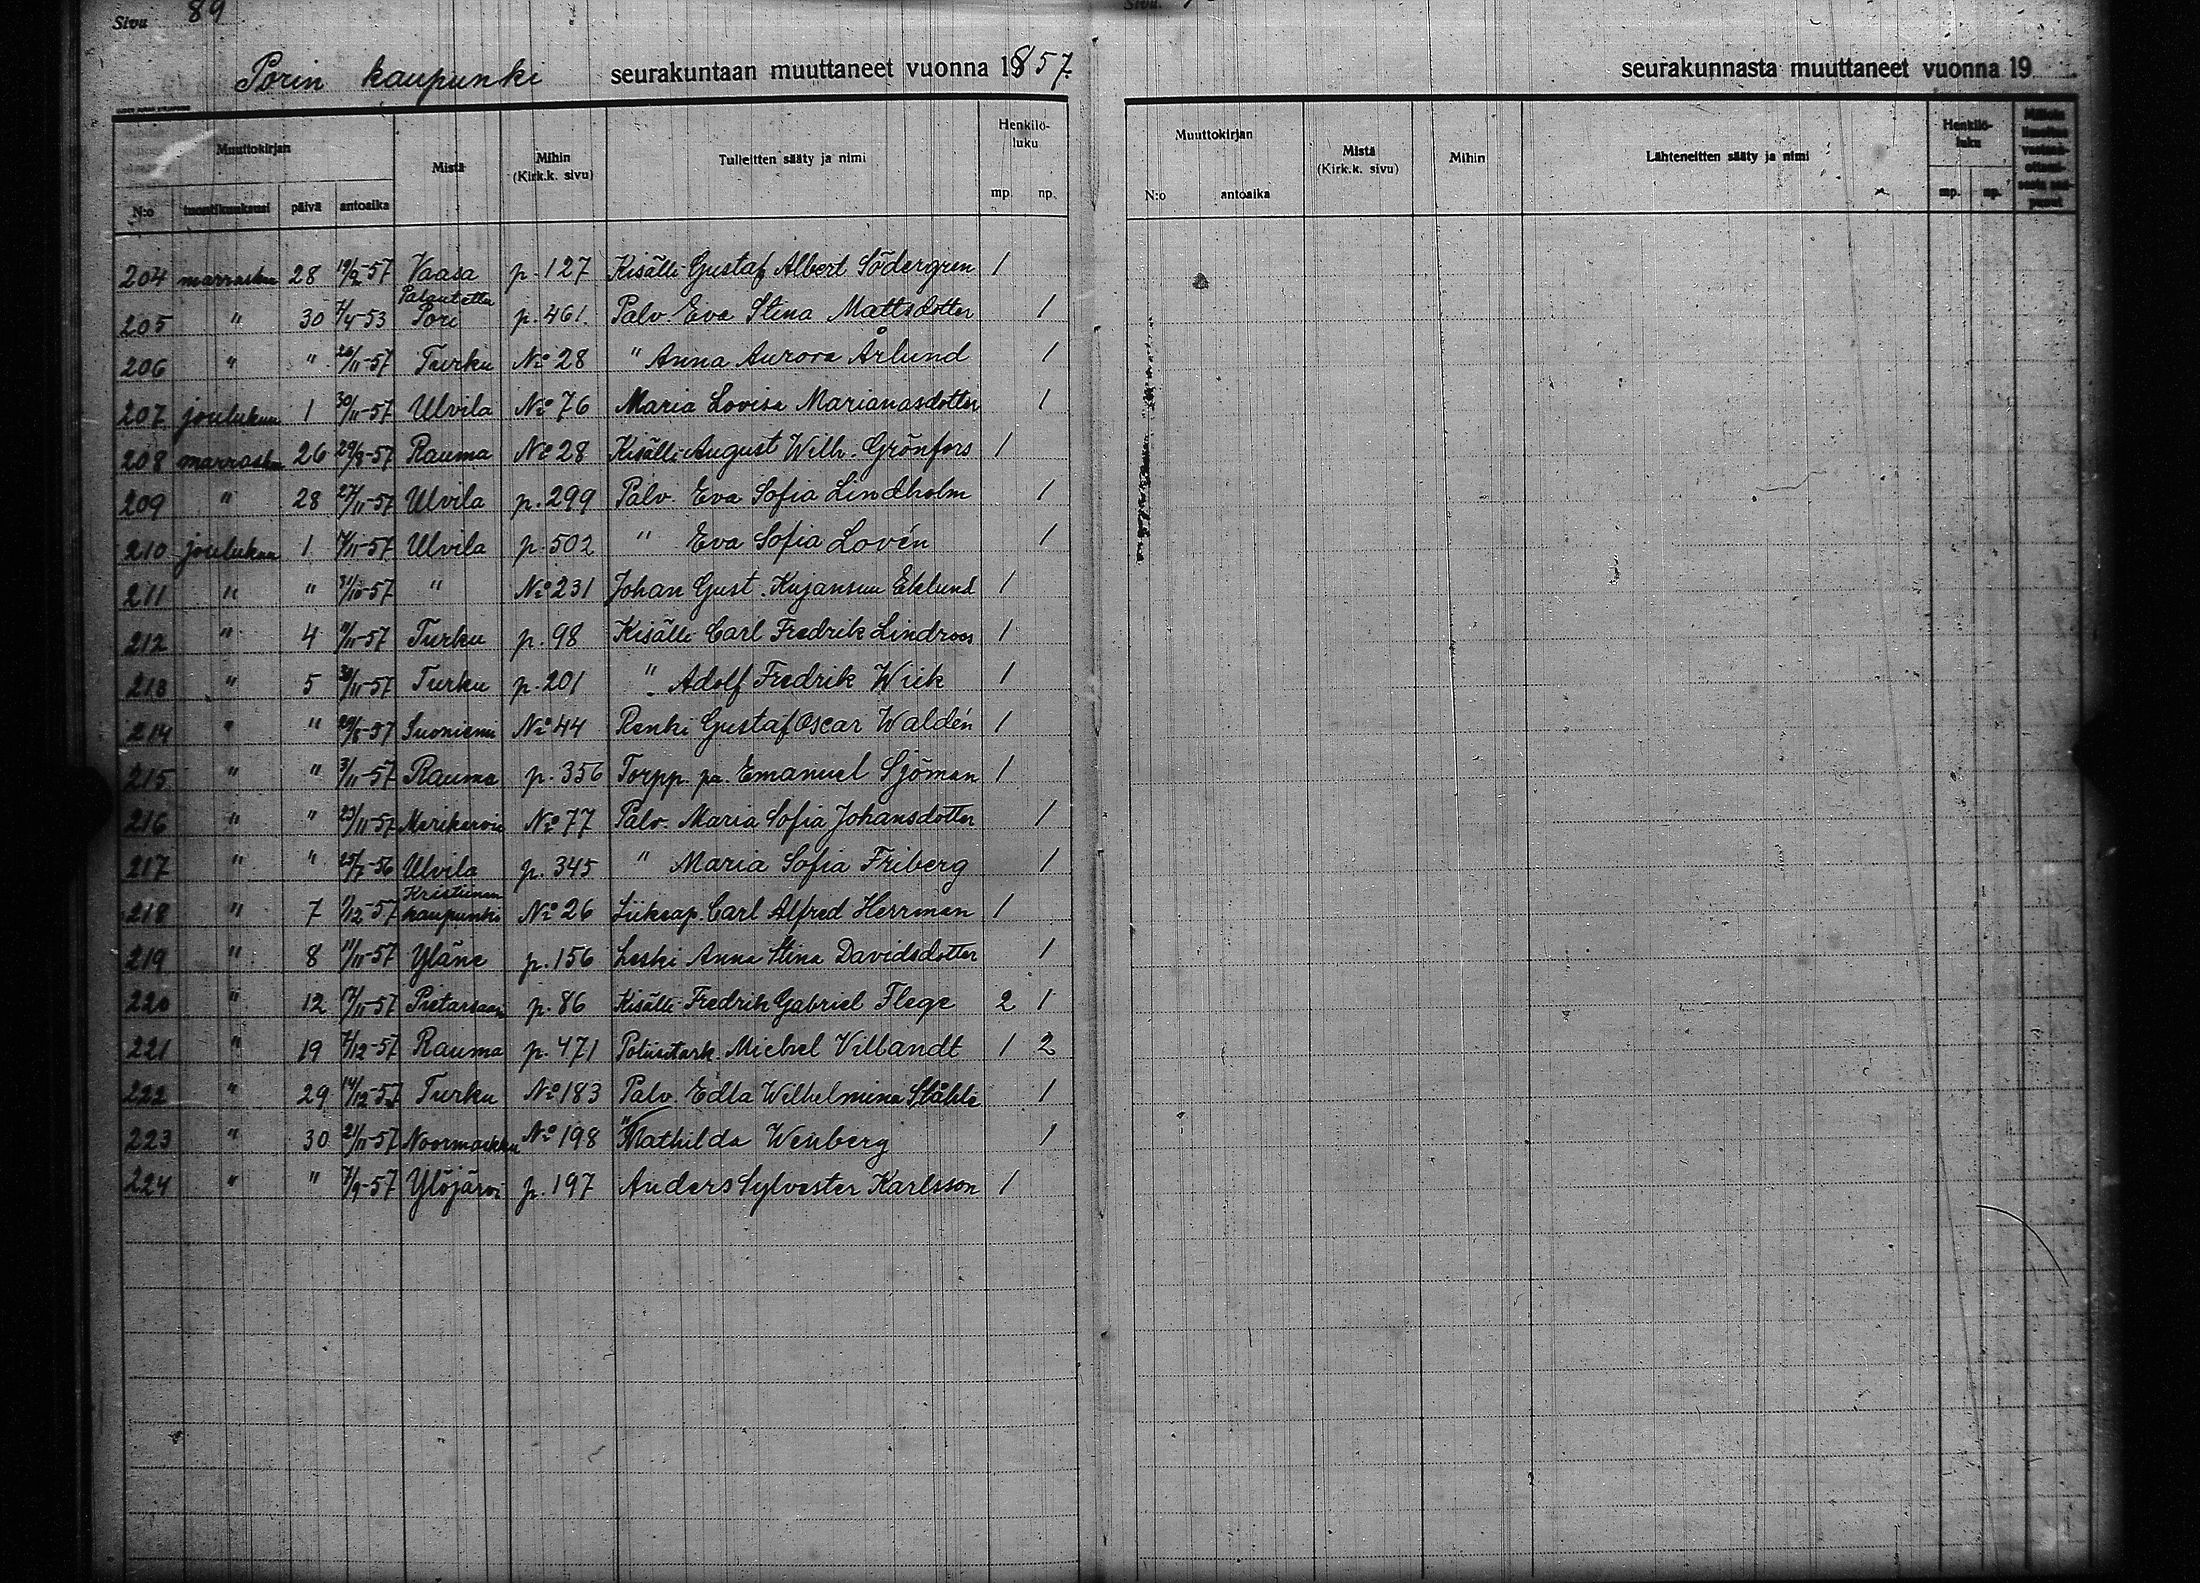 Sivu 89
Porin kaupunki seurakuntaan muuttaneet vuonna 1857.
Muuttokirjan Mistä Mihin (Kirk.k. sivu) Tulleitten sääty ja nimi Henkilöluku
N:o tuontikuukausi päivä antoaika mp. np.
204 marraskuu 28 19/9-57 Vaasa p. 127 Kisälli Gustaf Albert Södergren 1
205 " 30 /4-53 Palautettu Pori p. 461. Palv. Eva Stina Mattsdotter 1
206 " " 26/11-57 Turku No 28 " Anna Aurora Årlund 1
207 joulukuu 1 30/11-57 Ulvila No 76 Maria Lovisa Marianasdotter 1
208 marraskuu 26 29/8-57 Rauma No 28 Kisälli August Wilh. Grönfors 1
209 " 28 27/11-57 Ulvila p. 299 Palv. Eva Sofia Lindholm 1
210 joulukuu 1 /11-57 Ulvila p. 502 " Eva Sofia Lovén 1
211 " " 31/10-57 " No 231 Johan Gust. Kujansuu Eklund 1
212 " 4 11/11-57 Turku p. 98 Kisälli Carl Fredrik Lindroos 1
213 " 5 30/11-57 Turku p. 201 " Adolf Fredrik Wiik 1
214 " " 57 Suoniemi No 44 Renki Gustaf Oscar Waldén 1
215 " " 3/11-57 Rauma p. 356 Torpp. pr. Emanuel Sjöman 1
216 " " 23/11-57 Merikarvia No 77 Palv. Maria Sofia Johansdotter 1
217 " " 25/7-56 Ulvila p. 345 " Maria Sofia Friberg 1
218 " 7 1/12-57 Kristiinankaupunki No 26 Liikeap. Carl Alfred Herrman 1
219 " 8 11/11-57 Yläne p. 156 Leski Anna Stina Davidsdotter 1
220 " 12 17/11-57 Pietarsaari p. 86 Kisälli Fredrik Gabriel Flege 2 1
221 " 19 7/12-57 Rauma p. 471 Poliisitark. Michel Villandt 1 2
222 " 29 14/12-57 Turku No 183 Palv. Edla Wilhelmina Ståhle 1
223 " 30 21/11-57 Noormarkku No 198 " Mathilda Wenberg 1
224 " " 7/9-57 Ylöjärvi p. 197 Anders Sylvester Karlsson 1
Sivu
seurakunnasta muuttaneet vuonna 19
Muuttokirjan Mistä (Kirk.k. sivu) Mihin Lähteneitten sääty ja nimi Henkilöluku
N:o antoaika mp. np.